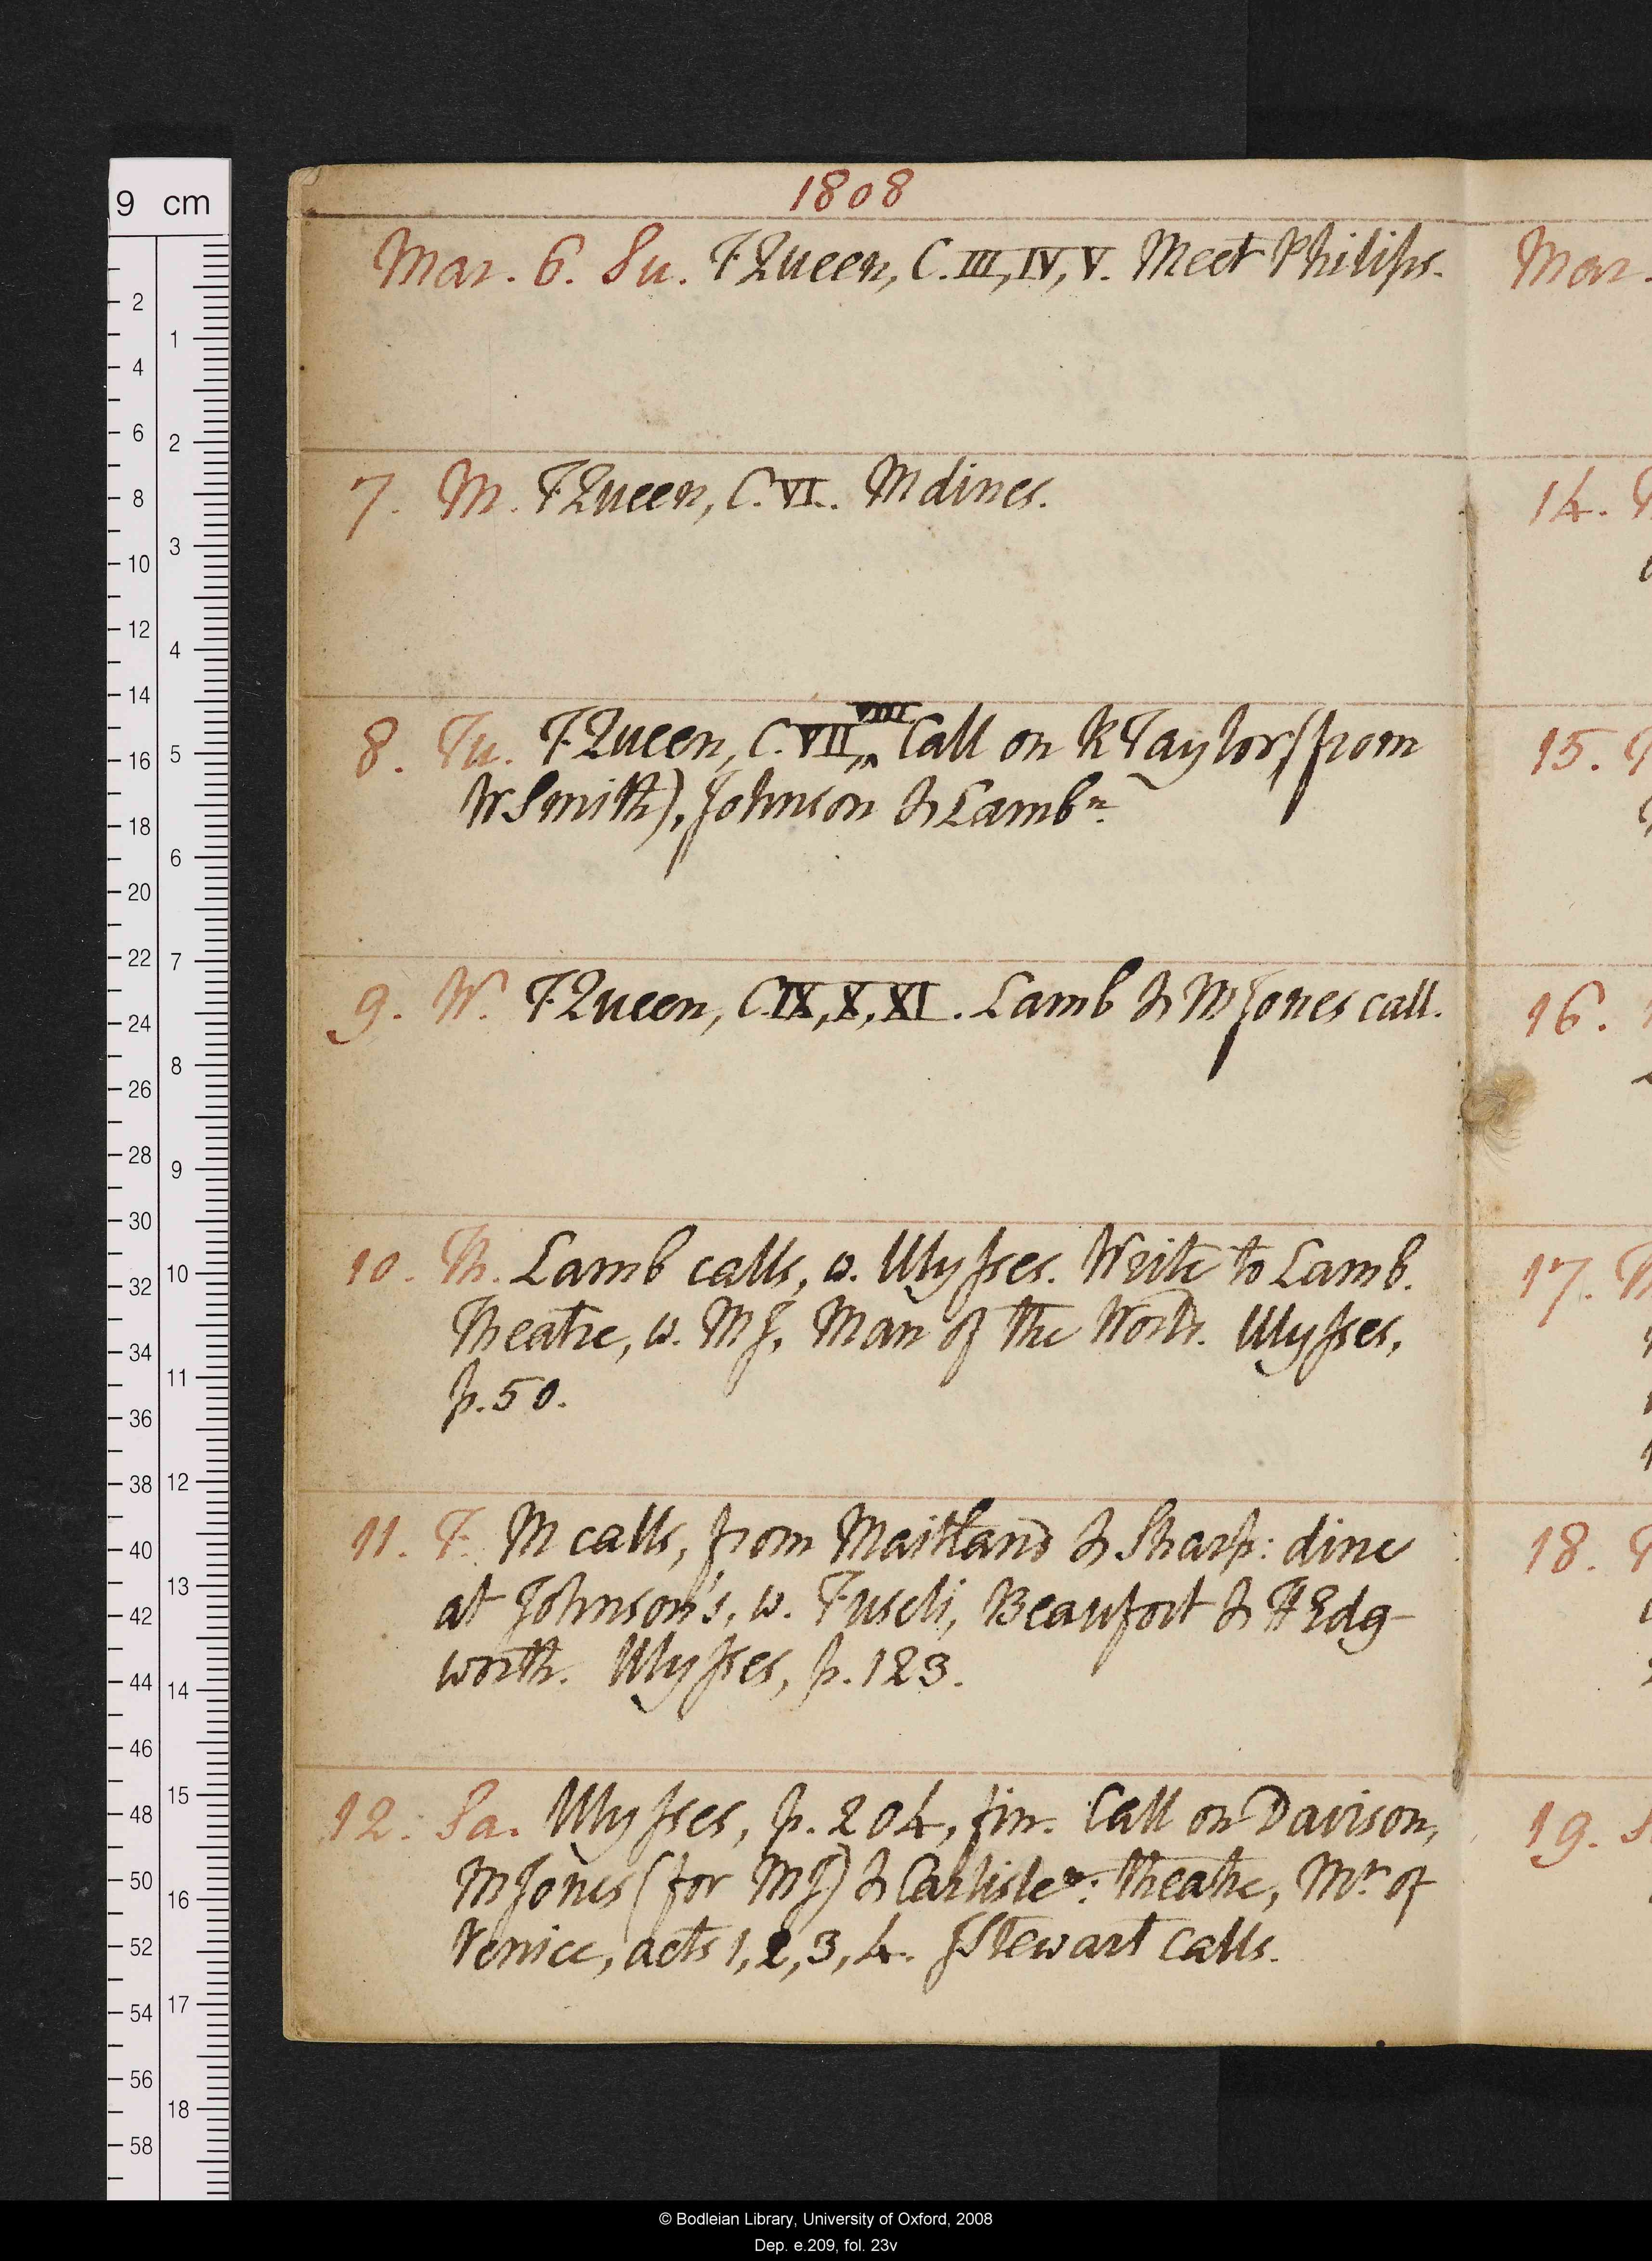 1808
Mar. 6. Su. F Queen, C. III, IV, V. Meet Philips.
7. M. F Queen, C. VI. M dines.
8. Tu. F Queen, C. VII, VIII Call on R Taylor (from
W Smith), Johnson & Lamb n.
9. W. F Queen, C. IX, X, XI. Lamb & M Jones call.
10. Th. Lamb calls, w. Ulysses. Write to Lamb.
Theatre, w. MJ, Man of the World. Ulysses,
p. 50.
11. F. M calls, from Maitland & Sharp: dine
at Johnson's, w. Fuseli, Beaufort & H Edg-
worth. Ulysses, p. 123.
12. Sa. Ulysses, p. 204, fin. Call on Davison,
M Jones (for MJ) & Carlisle n: theatre, Mt of
Venice, acts 1, 2, 3, 4. J Stewart calls.
Mar.
14.
15.
16.
17.
18.
19.
9 cm
2
4
6
8
10
12
14
16
18
20
22
24
26
28
30
32
34
36
38
40
42
44
46
48
50
52
54
56
58
1
2
3
4
5
6
7
8
9
10
11
12
13
14
15
16
17
18
© Bodleian Library, University of Oxford, 2008
Dep. e.209, fol. 23v